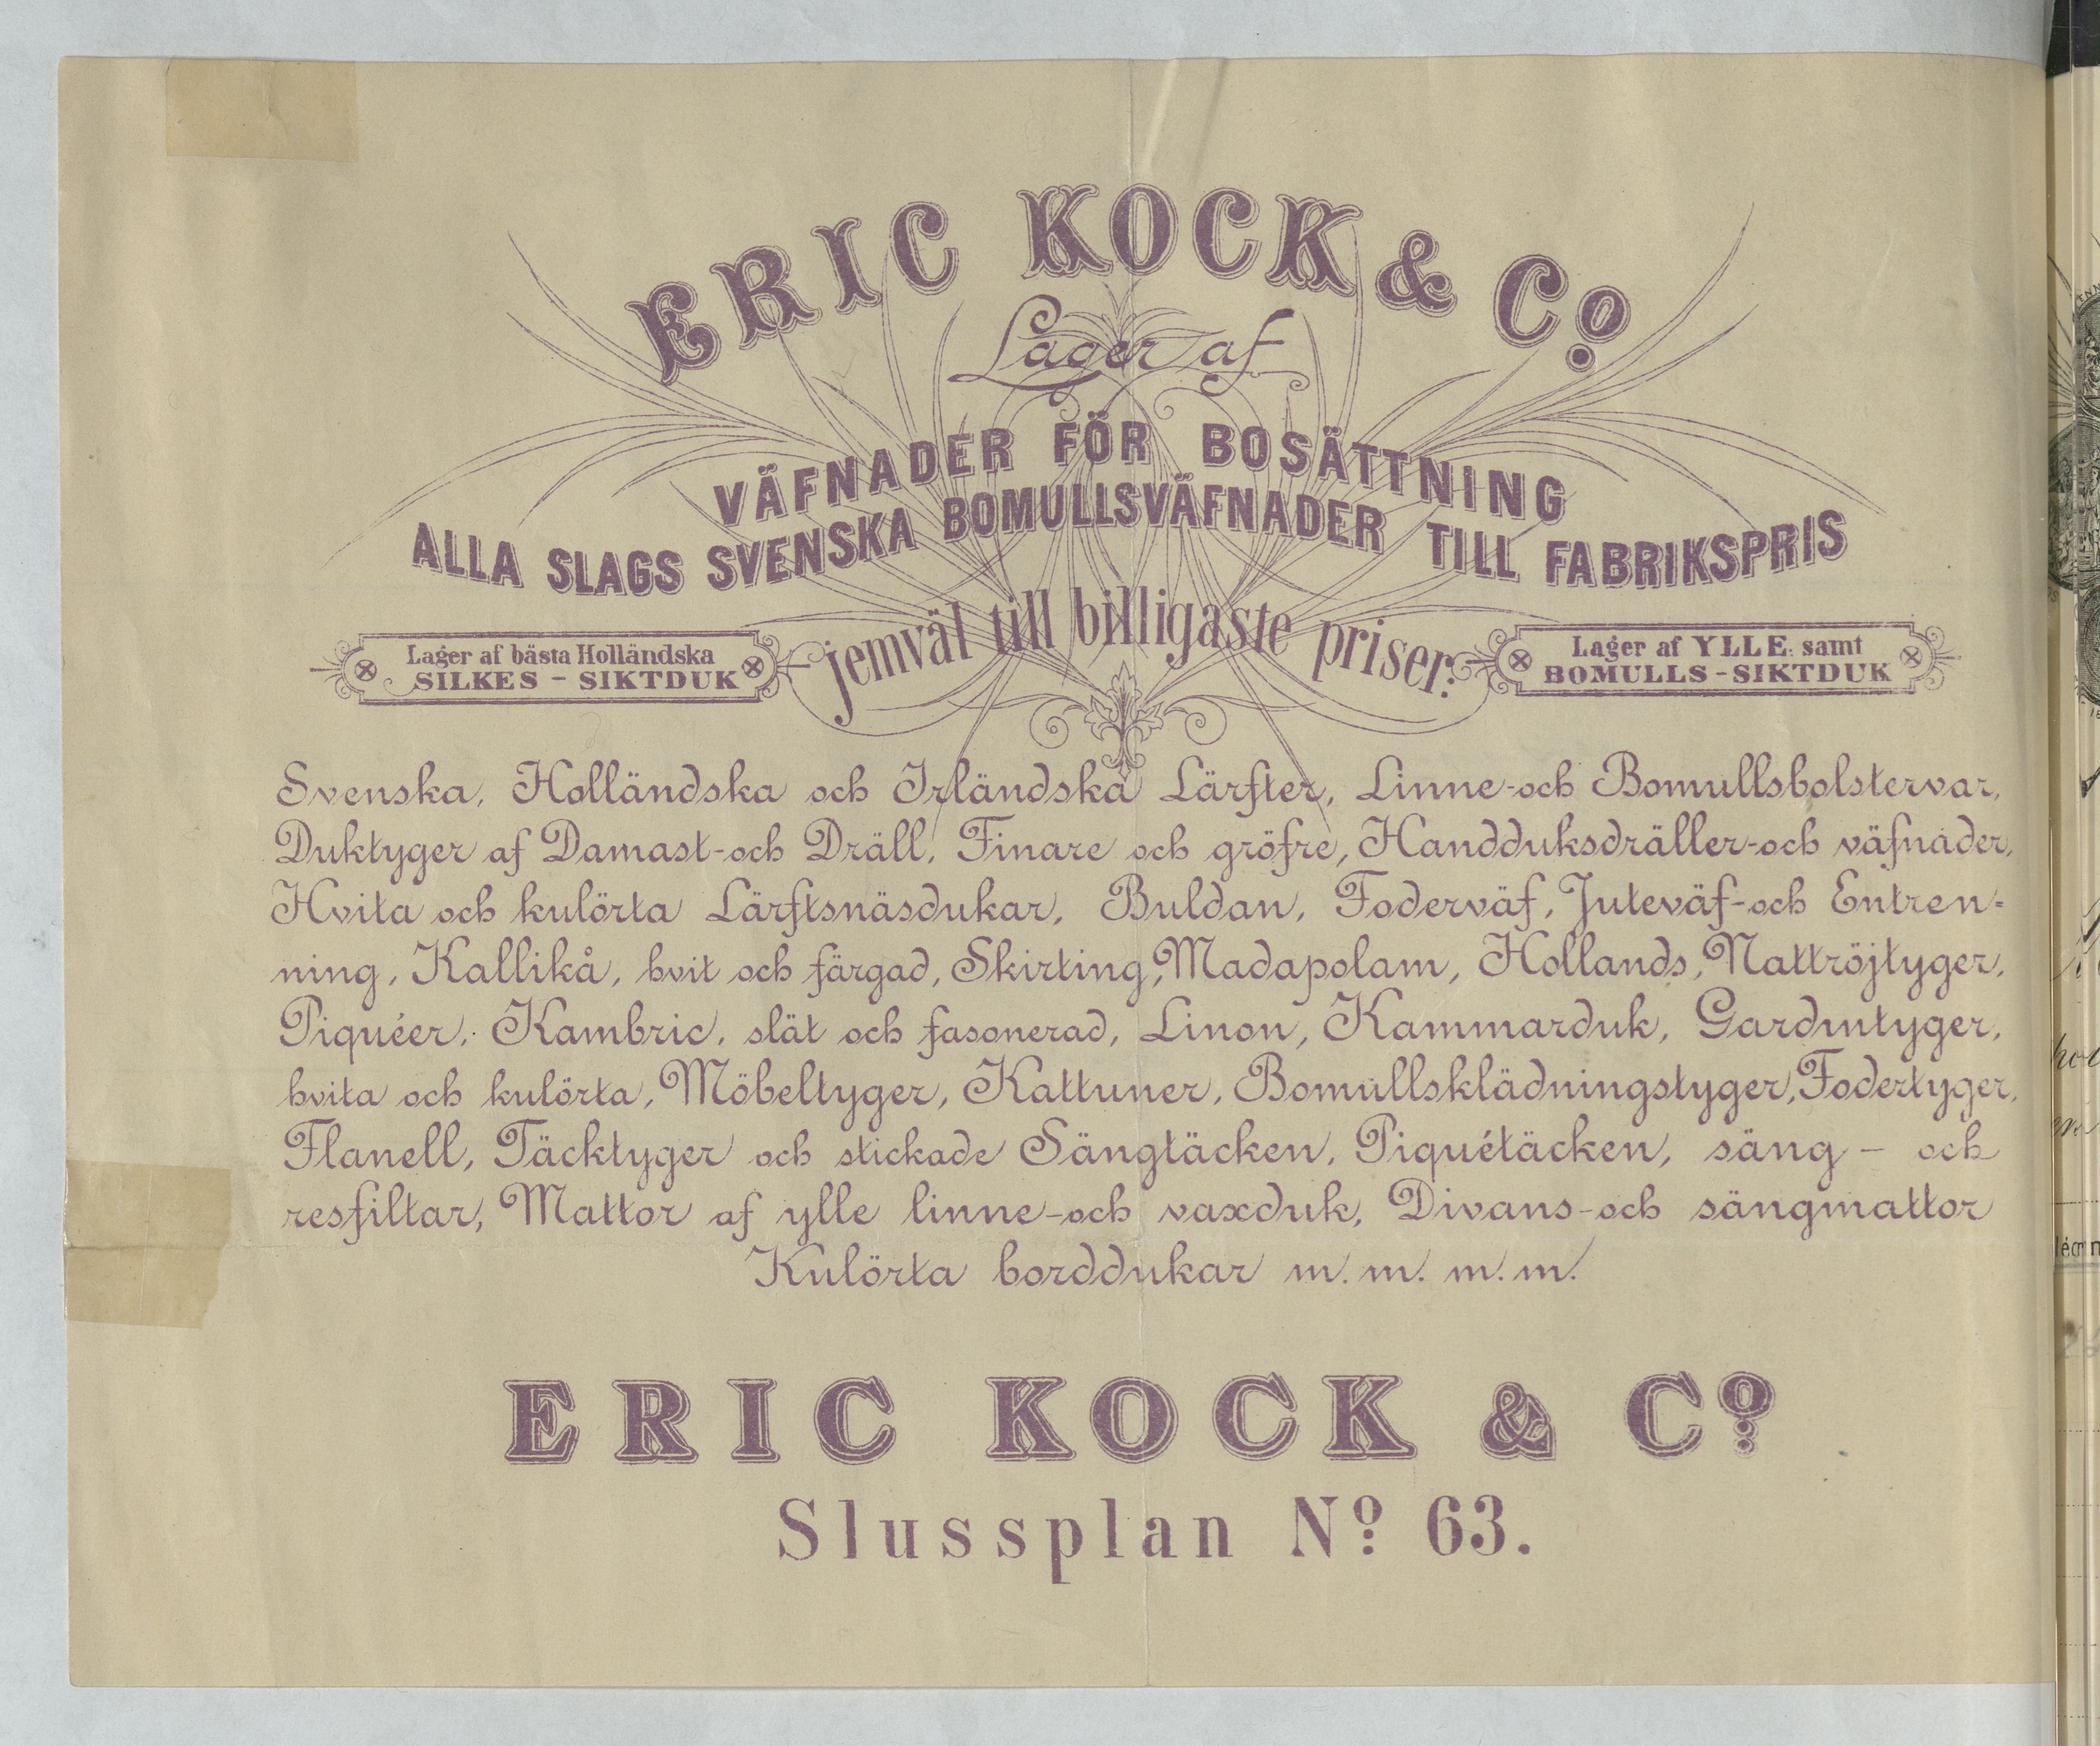 ERIC KOCK & Co
Lager af
VÄFNADER FÖR BOSÄTTNING
ALLA SLAGS SVENSKA BOMULLSVÄFNADER TILL FABRIKSPRIS
jemväl till billigaste priser:
Lager af bästa Holländska
SILKES - SIKTDUK
Lager af YLLE samt
BOMULLS - SIKTDUK
Svenska, Holländska och Irländska Lärfter, Linne-och Bomullsbolstervar,
Duktyger af Damast-och Dräll, Finare och gröfre, Handduksdräller-och väfnader,
Hvita och kulörta Lärftsnäsdukar, Buldan, Foderväf, Juteväf-och Entren=
ning, Kallikå, hvit och färgad, Skirting, Madapolam, Hollands, Nattröjtyger,
Piquéer, Kambric, slät och fasonerad, Linon, Kammarduk, Gardintyger,
hvita och kulörta, Möbeltyger, Kattuner, Bomullsklädningstyger, Fodertyger,
Flanell, Täcktyger och stickade Sängtäcken, Piquétäcken, säng - och
resfiltar, Mattor af ylle linne-och vaxduk, Divans-och sängmattor
Kulörta borddukar m. m. m. m.
ERIC KOCK & Co
Slussplan No 63.